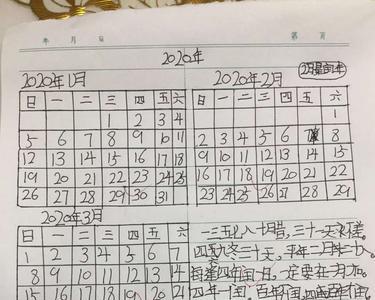 年 月 日 第 页
2020年
2020年1月
日 一 二 三 四 五 六
1 2 3 4
5 6 7 8 9 10 11
12 13 14 15 16 17 18
19 20 21 22 23 24 25
26 27 28 29 30 31
2020年2月
日 一 二 三 四 五 六
1
2 3 4 5 6 8
9 10 11 12 13 14 15
16 17 18 19 20 21 22
23 24 25 26 27 28 29
2020年3月
日 一 二 三 四 五 六
1 2 3 4 5 6 7
8 9 10 11 12 13 14
15 16 17 18 19 20 21
一三五七八十月腊,三十一天永不差。
四六九冬三十天,平年二月二十八
每逢四年闰一日,一定要在二月加。
四年一闰,百年不闰,四百年